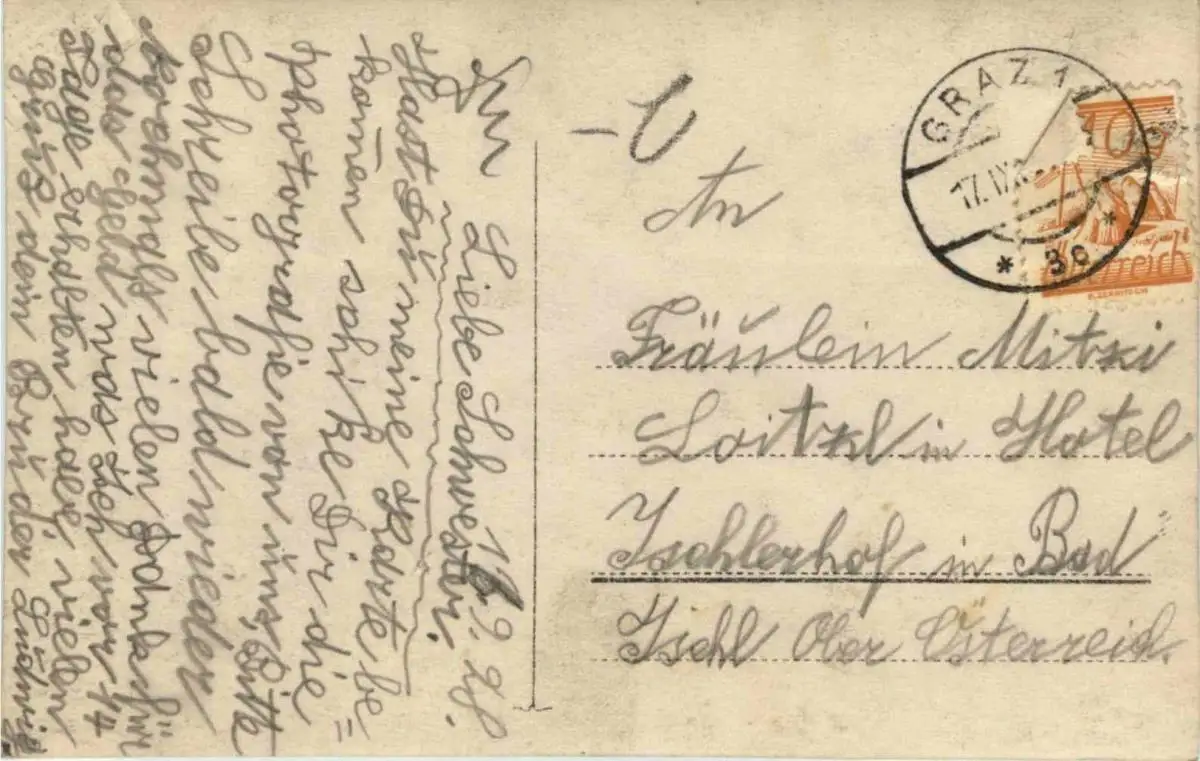 Am 16.9.28.
Liebe Schwester.
Hast Dŭ meine Karte be=
kom̄en schike Dir die
photografie von ŭns, Bitte
Schreibe bald wieder
nochmals vielen Dank fŭr
das Geld was Ich vor 14
Tage erhalten habe, vielen
Grŭß dein Brŭder Lŭdwig
An
Fräŭlein Mitzi
Loitzl in Hotel
Ischlerhof in Bad
Ischl Ober Österreich.
GRAZ 1
17.IX.
* 3c *
10
Österreich